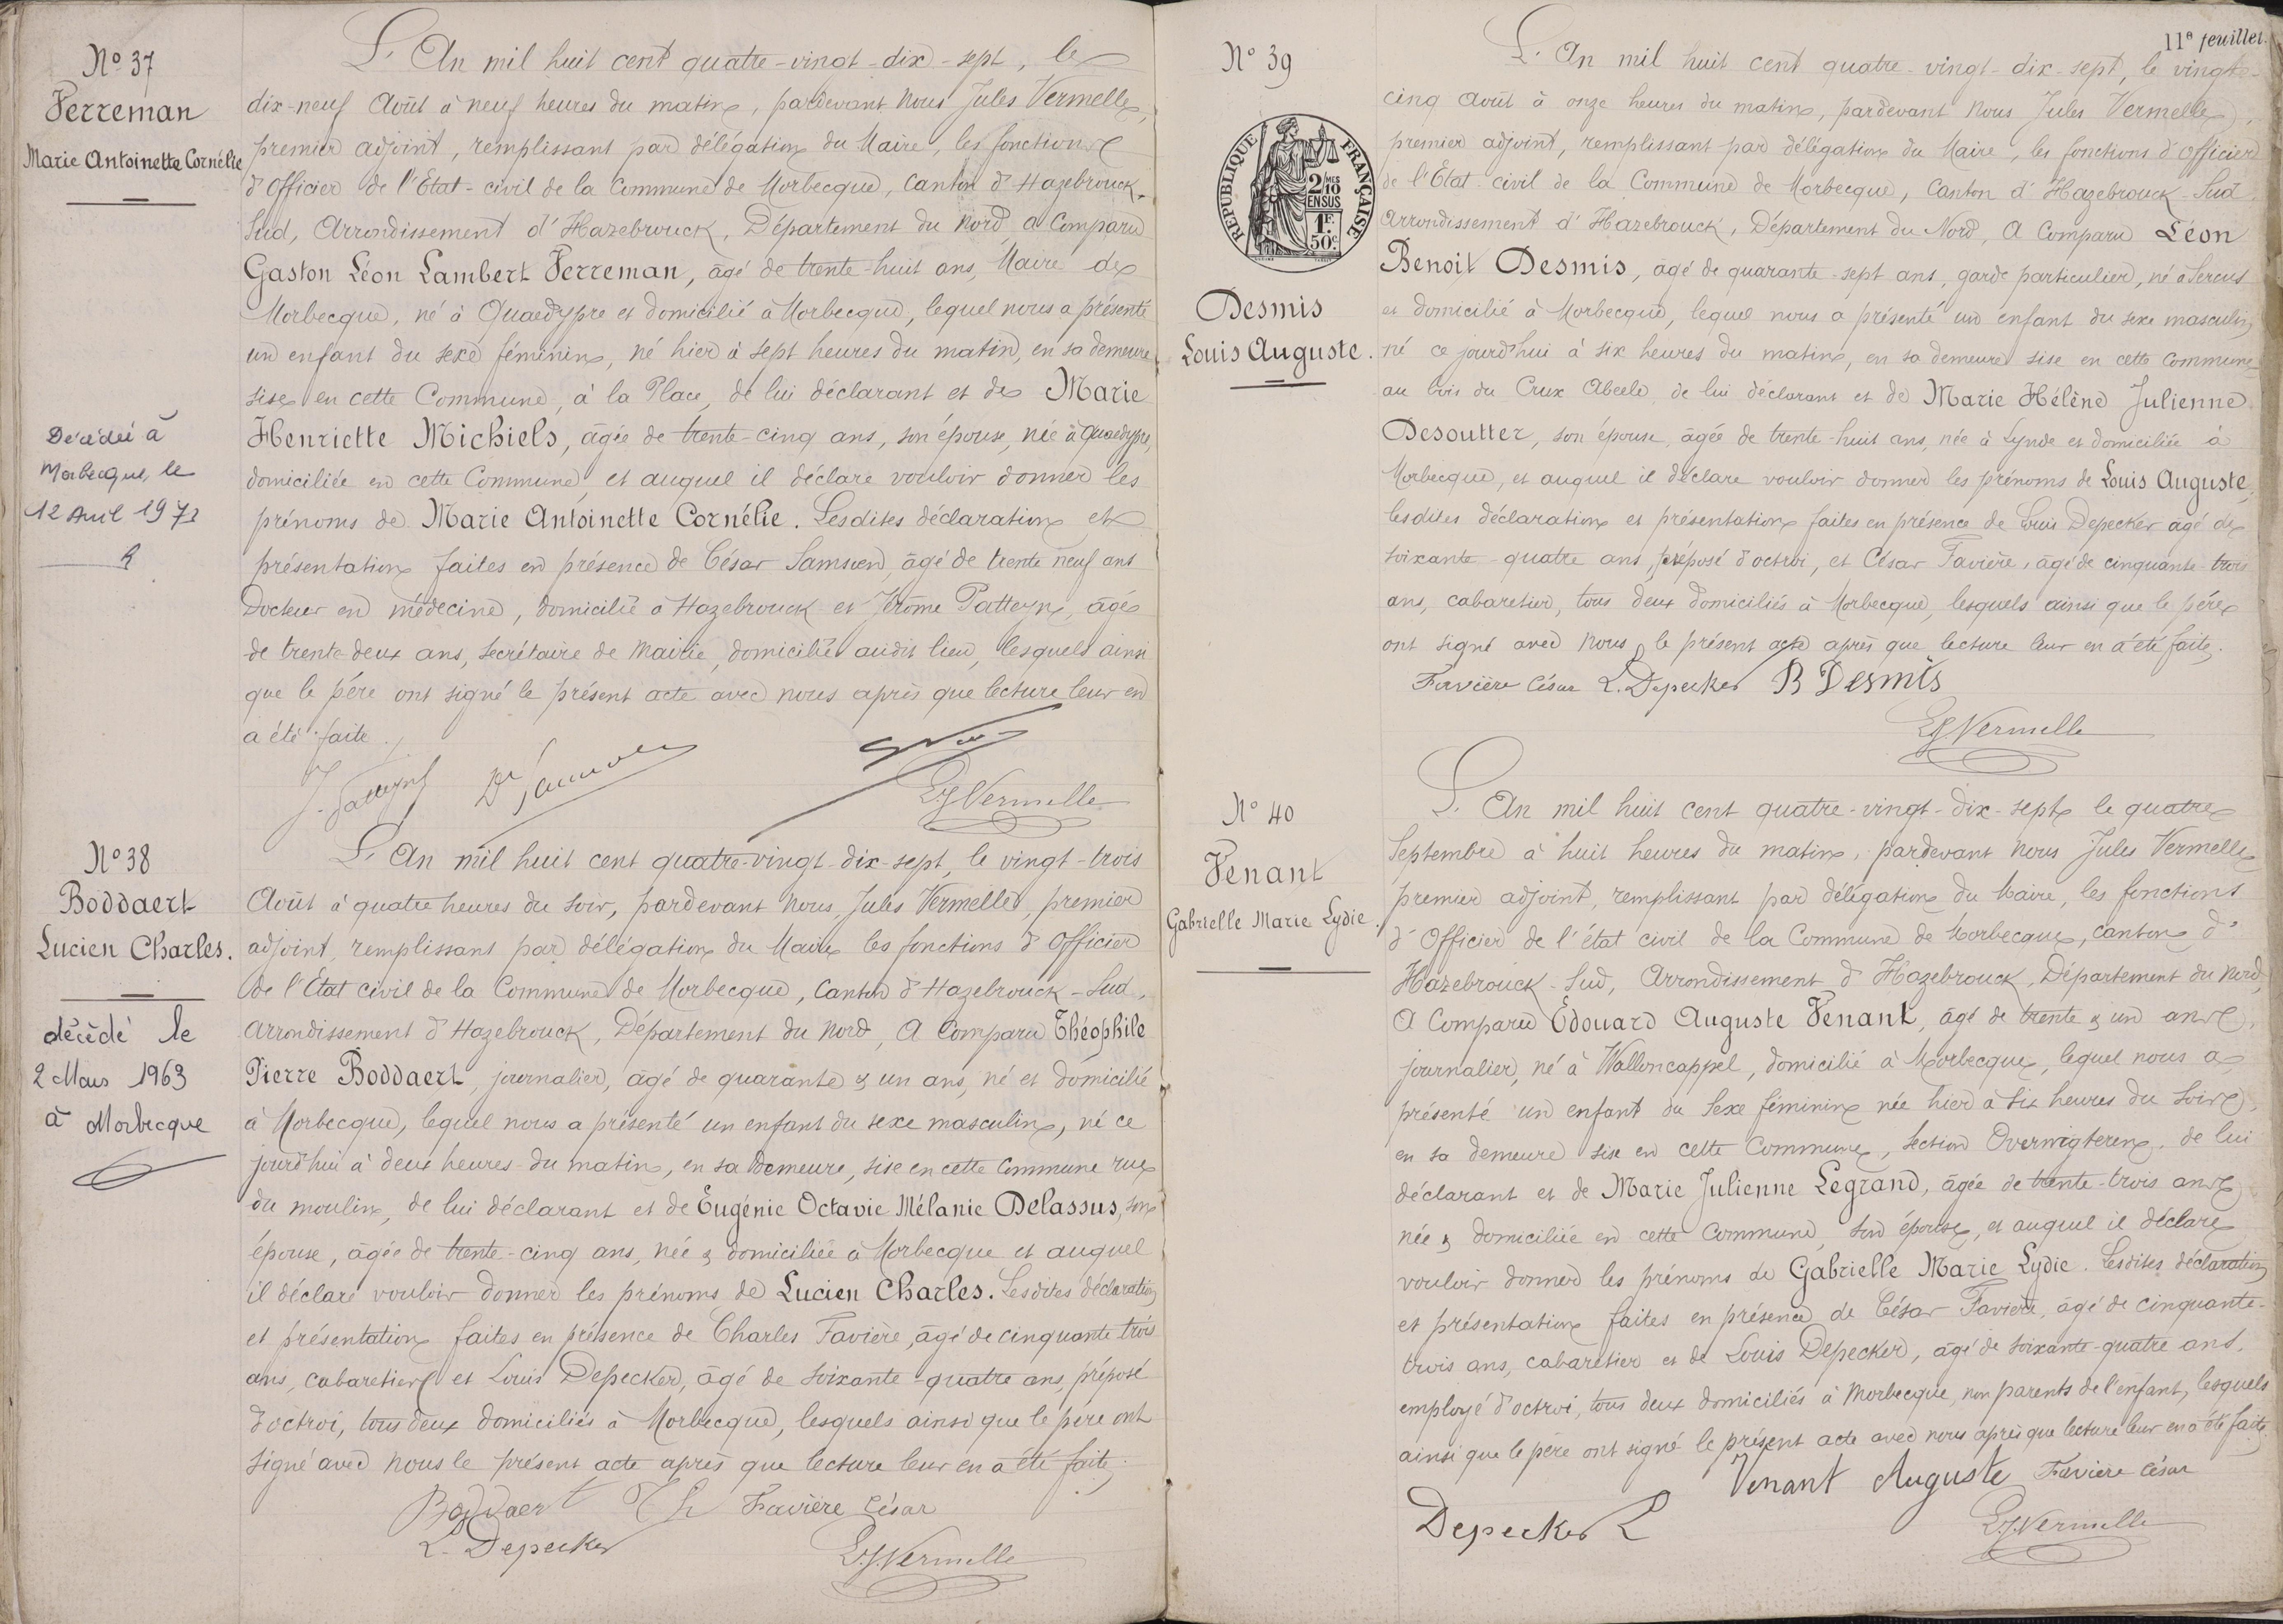 Nº 37
Verreman
Marie Antoinette Cornélie
Décédée à
Morbecque, le
12 Avril 1971
L'An mil huit cent quatre-vingt-dix-sept, le
dix-neuf Août à neuf heures du matin, pardevant Nous Jules Vermelle,
premier adjoint, remplissant par délégation du Maire, les fonctions
d'Officier de l'Etat-civil de la Commune de Morbecque, Canton d'Hazebrouck-
Sud, Arrondissement d'Hazebrouck, Département du Nord, a Comparu
Gaston Léon Lambert Verreman, âgé de trente-huit ans, Maire de
Morbecque, né à Quaedypre et domicilié à Morbecque, lequel nous a présenté
un enfant du sexe féminin, né hier à sept heures du matin, en sa demeure
sise en cette Commune, à la Place, de lui déclarant et de Marie
Henriette Michiels, âgée de trente-cinq ans, son épouse, née à Quaedypre,
domiciliée en cette Commune, et auquel il déclare vouloir donner les
prénoms de Marie Antoinette Cornélie. Lesdites déclaration et
présentation faites en présence de César Samsoen, âgé de trente neuf ans
Docteur en médecine, domicilié à Hazebrouck et Jérôme Patteyn, âgé
de trente-deux ans, secrétaire de Mairie, domicilié audit lieu, lesquels ainsi
que le père ont signé le présent acte avec nous après que lecture leur en
a été faite.
J. Patteyn Dr Samsoen
E.J. Vermelle
Nº 38
Boddaert
Lucien Charles.
décédé le
2 Mars 1963
à Morbecque
L'An mil huit cent quatre-vingt-dix-sept, le vingt-trois
Août à quatre heures du soir, pardevant Nous, Jules Vermelle, premier
adjoint, remplissant par délégation du Maire les fonctions d'Officier
de l'Etat civil de la Commune de Morbecque, Canton d'Hazebrouck-Sud,
arrondissement d'Hazebrouck, Département du Nord, A Comparu Théophile
Pierre Boddaert, journalier, âgé de quarante & un ans, né et domicilié
à Morbecque, lequel nous a présenté un enfant du sexe masculin, né ce
jourd'hui à deux heures du matin, en sa demeure, sise en cette Commune rue
du moulin, de lui déclarant et de Eugénie Octavie Mélanie Delassus, son
épouse, âgée de trente-cinq ans, née & domiciliée à Morbecque et auquel
il déclare vouloir donner les prénoms de Lucien Charles. Lesdites déclaration
et présentation faites en présence de Charles Favière, âgé de cinquante trois
ans, cabaretier et Louis Depecker, âgé de soixante-quatre ans, préposé
d'octroi, tous deux domiciliés à Morbecque, lesquels ainsi que le père ont
signé avec Nous le présent acte après que lecture leur en a été faite.
Boddaert Th Favière César
L. Depecker
E.J. Vermelle
11e feuillet.
Nº 39
REPUBLIQUE FRANÇAISE
2 MES
10
EN SUS
1F.
50c
Desmis
Louis Auguste.
L'An mil huit cent quatre-vingt-dix-sept, le vingt-
cinq Août à onze heures du matin, pardevant Nous Jules Vermelle,
premier adjoint, remplissant par délégation du Maire, les fonctions d'Officier
de l'Etat-civil de la Commune de Morbecque, Canton d'Hazebrouck-Sud,
Arrondissement d'Hazebrouck, Département du Nord, A Comparu Léon
Benoit Desmis, âgé de quarante-sept ans, garde particulier, né à Sercus
et domicilié à Morbecque, lequel nous a présenté un enfant du sexe masculin,
né ce jourd'hui à six heures du matin, en sa demeure sise en cette commune
au bois du Crux Abeele, de lui déclarant et de Marie Hélène Julienne
Desoutter, son épouse, âgée de trente-huit ans, née à Lynde et domiciliée à
Morbecque, et auquel il déclare vouloir donner les prénoms de Louis Auguste,
lesdites déclaration et présentation faites en présence de Louis Depecker âgé de
soixante-quatre ans, préposé d'octroi, et César Favière, âgé de cinquante-trois
ans, cabaretier, tous deux domiciliés à Morbecque, lesquels ainsi que le père
ont signé avec Nous, le présent acte après que lecture leur en a été faite.
Favière César L. Depecker B Desmis
E.J. Vermelle
Nº 40
Venant
Gabrielle Marie Lydie.
L'An mil huit cent quatre-vingt-dix-sept le quatre
Septembre à huit heures du matin, pardevant Nous Jules Vermelle
premier adjoint, remplissant par délégation du Maire, les fonctions
d'Officier de l'état civil de la Commune de Morbecque, canton d'
Hazebrouck-Sud, Arrondissement d'Hazebrouck, Département du Nord,
A Comparu Edouard Auguste Venant, âgé de trente & un ans,
journalier, né à Walloncappel, domicilié à Morbecque, lequel nous a
présenté un enfant du Sexe féminin née hier à six heures du soir,
en sa demeure sise en cette Commune, section Overnigteren, de lui
déclarant et de Marie Julienne Legrand, âgée de trente-trois ans
née & domiciliée en cette Commune, son épouse, et auquel il déclare
vouloir donner les prénoms de Gabrielle Marie Lydie. Lesdites déclaration
et présentation faites en présence de César Favière, âgé de cinquante-
trois ans, cabaretier et de Louis Depecker, âgé de soixante-quatre ans,
employé d'octroi, tous deux domiciliés à Morbecque, non parents de l'enfant, lesquels
ainsi que le père ont signé le présent acte avec nous après que lecture leur en a été faite.
Venant Auguste Favière César
Depecker L
E.J. Vermelle